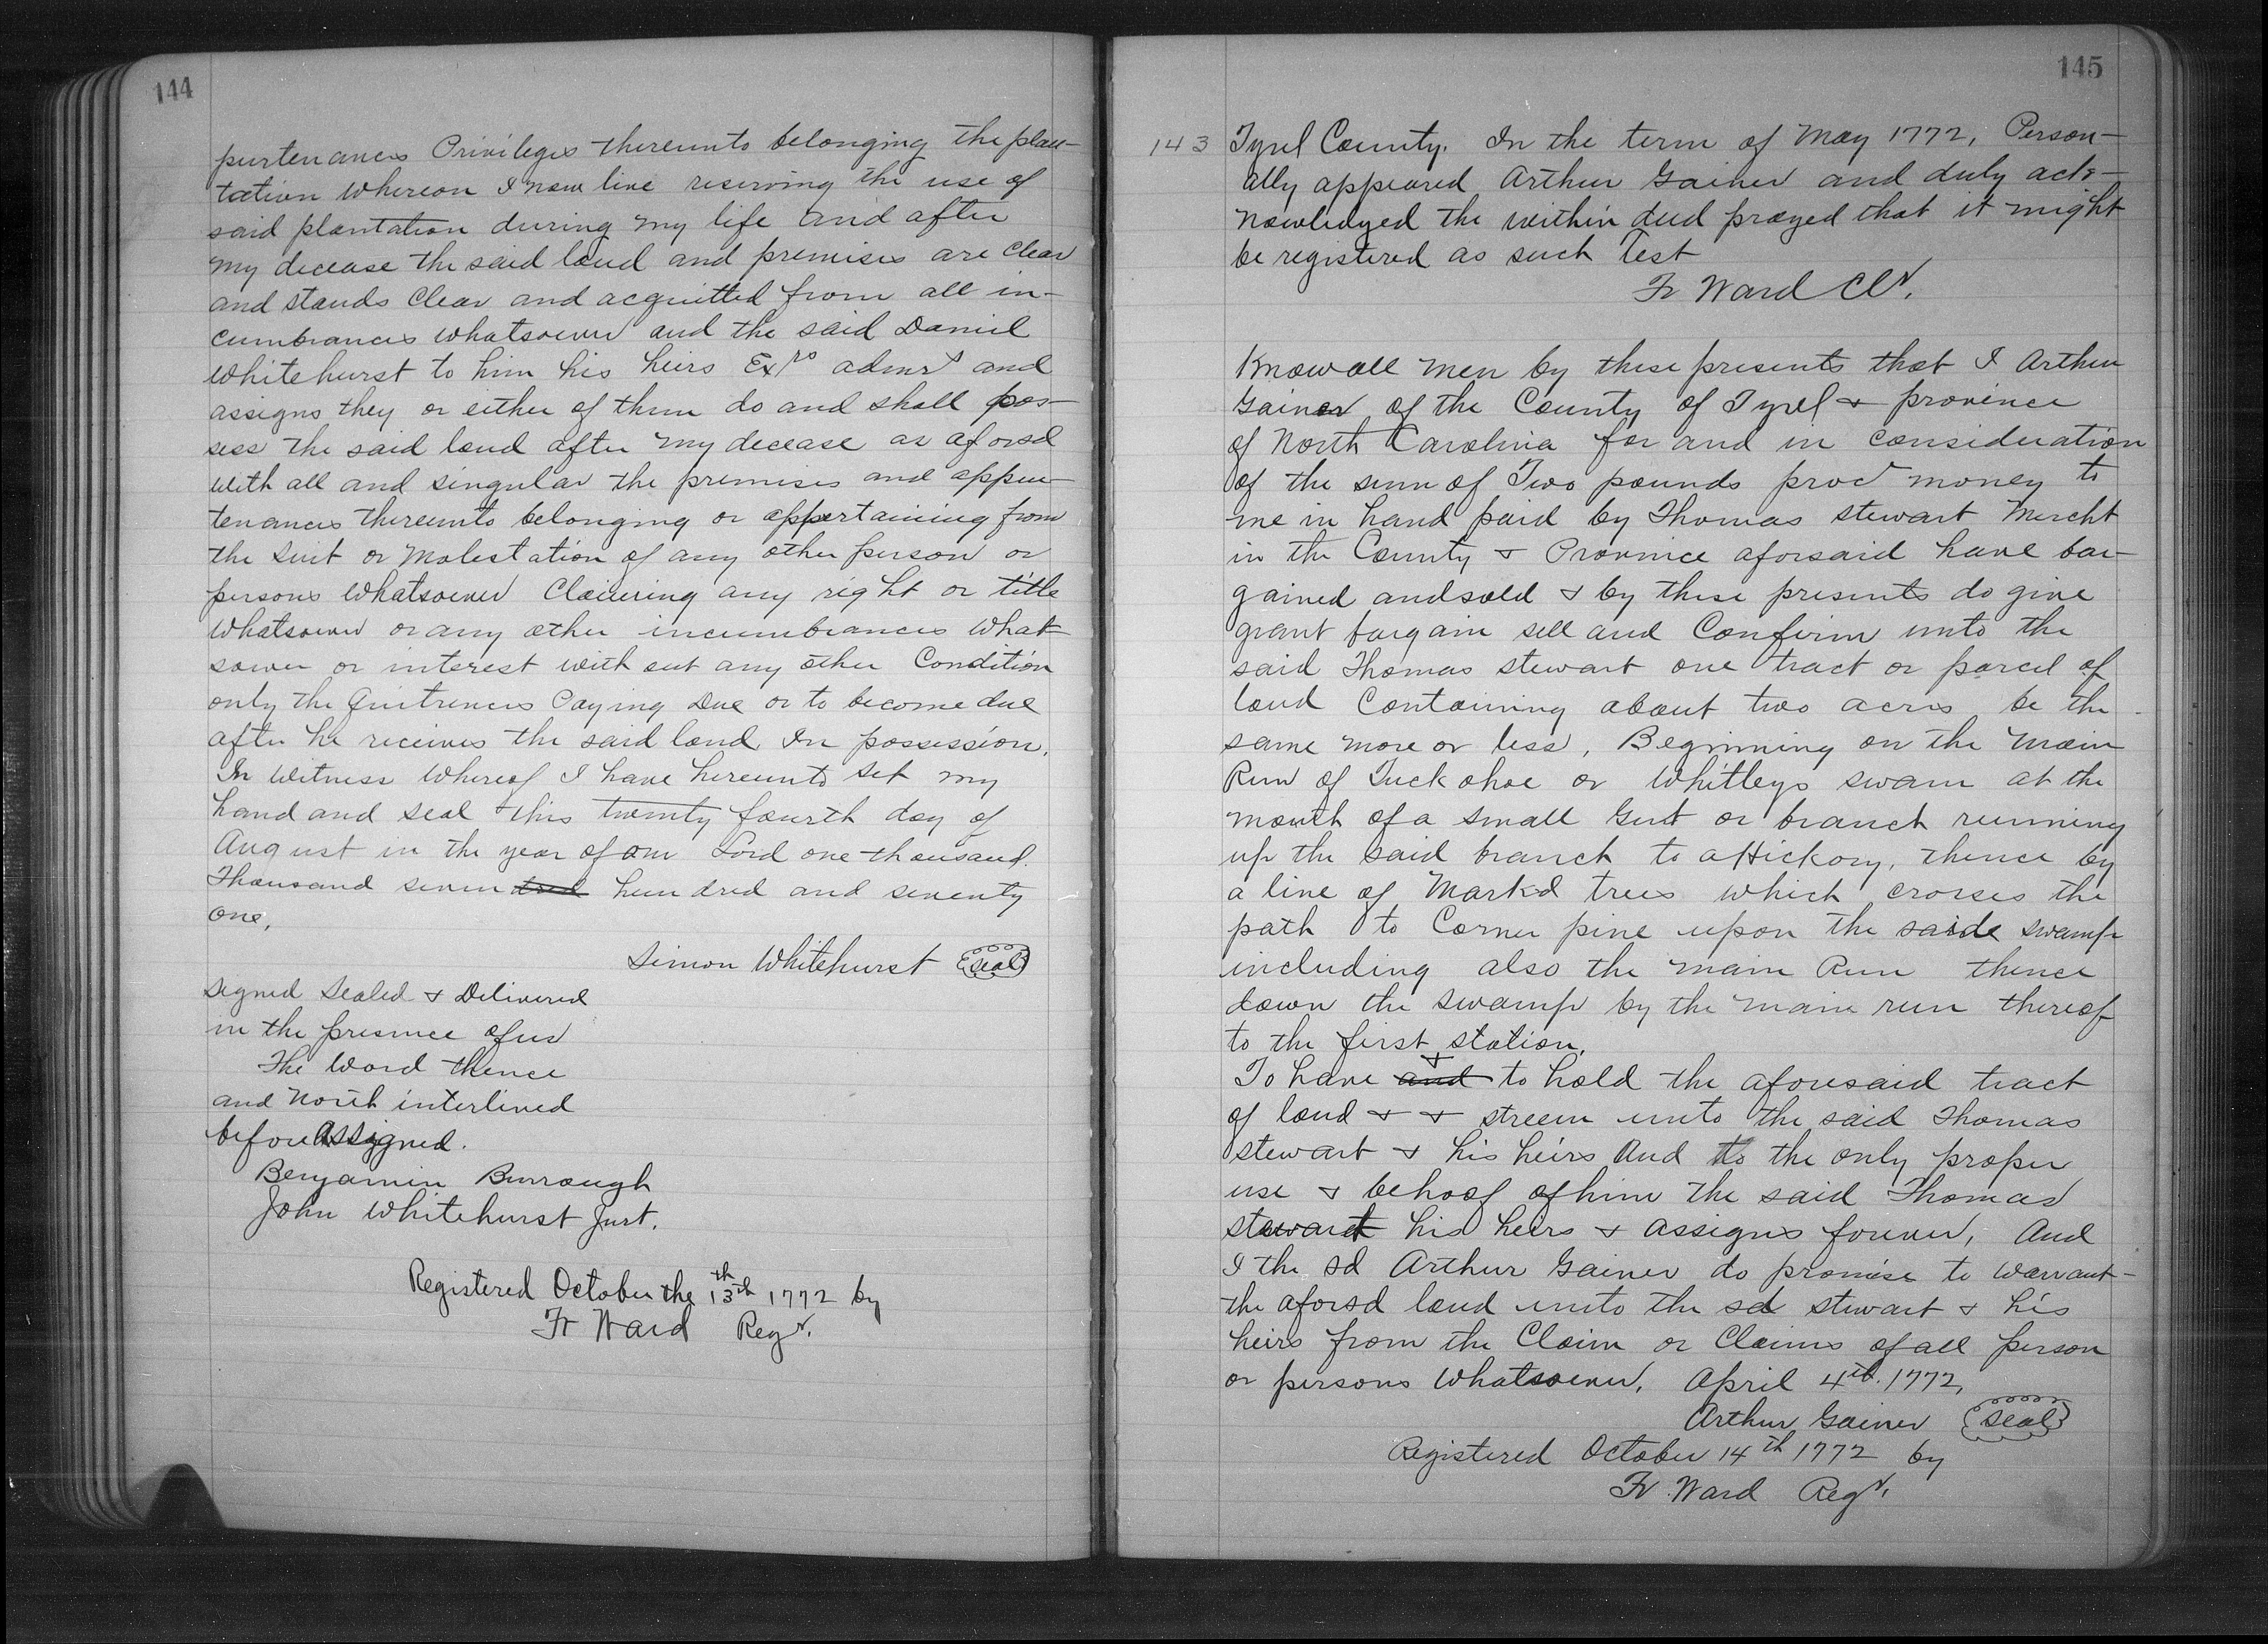 144
purtenances Privileges thereunto belonging the plan-
tation whereon I now live reserving the use of
said plantation during my life and after
my decease the said land and premises are clear
and stands clear and acquitted from all in-
cumbrances whatsoever and the said Daniel
Whitehurst to him his heirs Exrs admrs and
assigns they or either of them do and shall pos-
sess the said land after my decease as aforsd
with all and singular the premises and appur-
tenances thereunto belonging or appertaining from
the suit or Molestation of any other person or
persons whatsoever Claiming any right or title
whatsoever or any other incumbrances what-
soever or interest with out any other Condition
only the Quitrences Paying Due or to become due
after he receives the said land In possession.
In Witness Whereof I have hereunto set my
hand and seal this twenty fourth day of
August in the year of our Lord one thousand
Thousand seven dred hundred and seventy
one,
Simon Whitehurst Seal
Signed Sealed & Delivered
in the presence of us
The Word thence
and North interlined
before assigned.
Benjamin Burrough
John Whitehurst Jurt.
Registered October the 13th th 1772 by
Fr Ward Regr.
145
143 Tyrel County. In the term of May 1772, Person-
ally appeared Arthur Gainer and duly ack-
nowledged the within deed prayed that it might
be registered as such Test
Fr Ward Clr.
Know all men by these presents that I Arthur
Gainer of the County of Tyrel & province
of North Carolina for and in consideration
of the sum of Two pounds proc money to
me in hand paid by Thomas Stewart Mercht
in the County & Province aforsaid have bar-
gained and sold & by these presents do give
grant bargain sell and Confirm unto the
said Thomas Stewart one tract or parcel of
land Containing about two acres be the
same more or less, Beginning on the main
Run of Tuckohoe or Whitleys swam at the
mouth of a small Gut or branch running
up the said branch to a Hickory, thence by
a line of Markd trees which crosses the
path to Corner pine upon the saide swamp
including also the main Run thence
down the swamp by the main run thereof
to the first station.
To have and & to hold the aforesaid tract
of land & & streem unto the said Thomas
Stewart & his heirs And to the only proper
use & behoof of him the said Thomas
Stewart his heirs & assigns forever, And
I the sd Arthur Gainer do promise to Warrant-
the aforsd land unto the sd Stewart & his
heirs from the Claim or Claims of all person
or persons Whatsoever. April 4th. 1772,
Arthur Gainer Seal
Registered October 14th 1772 by
Fr Ward Regr.